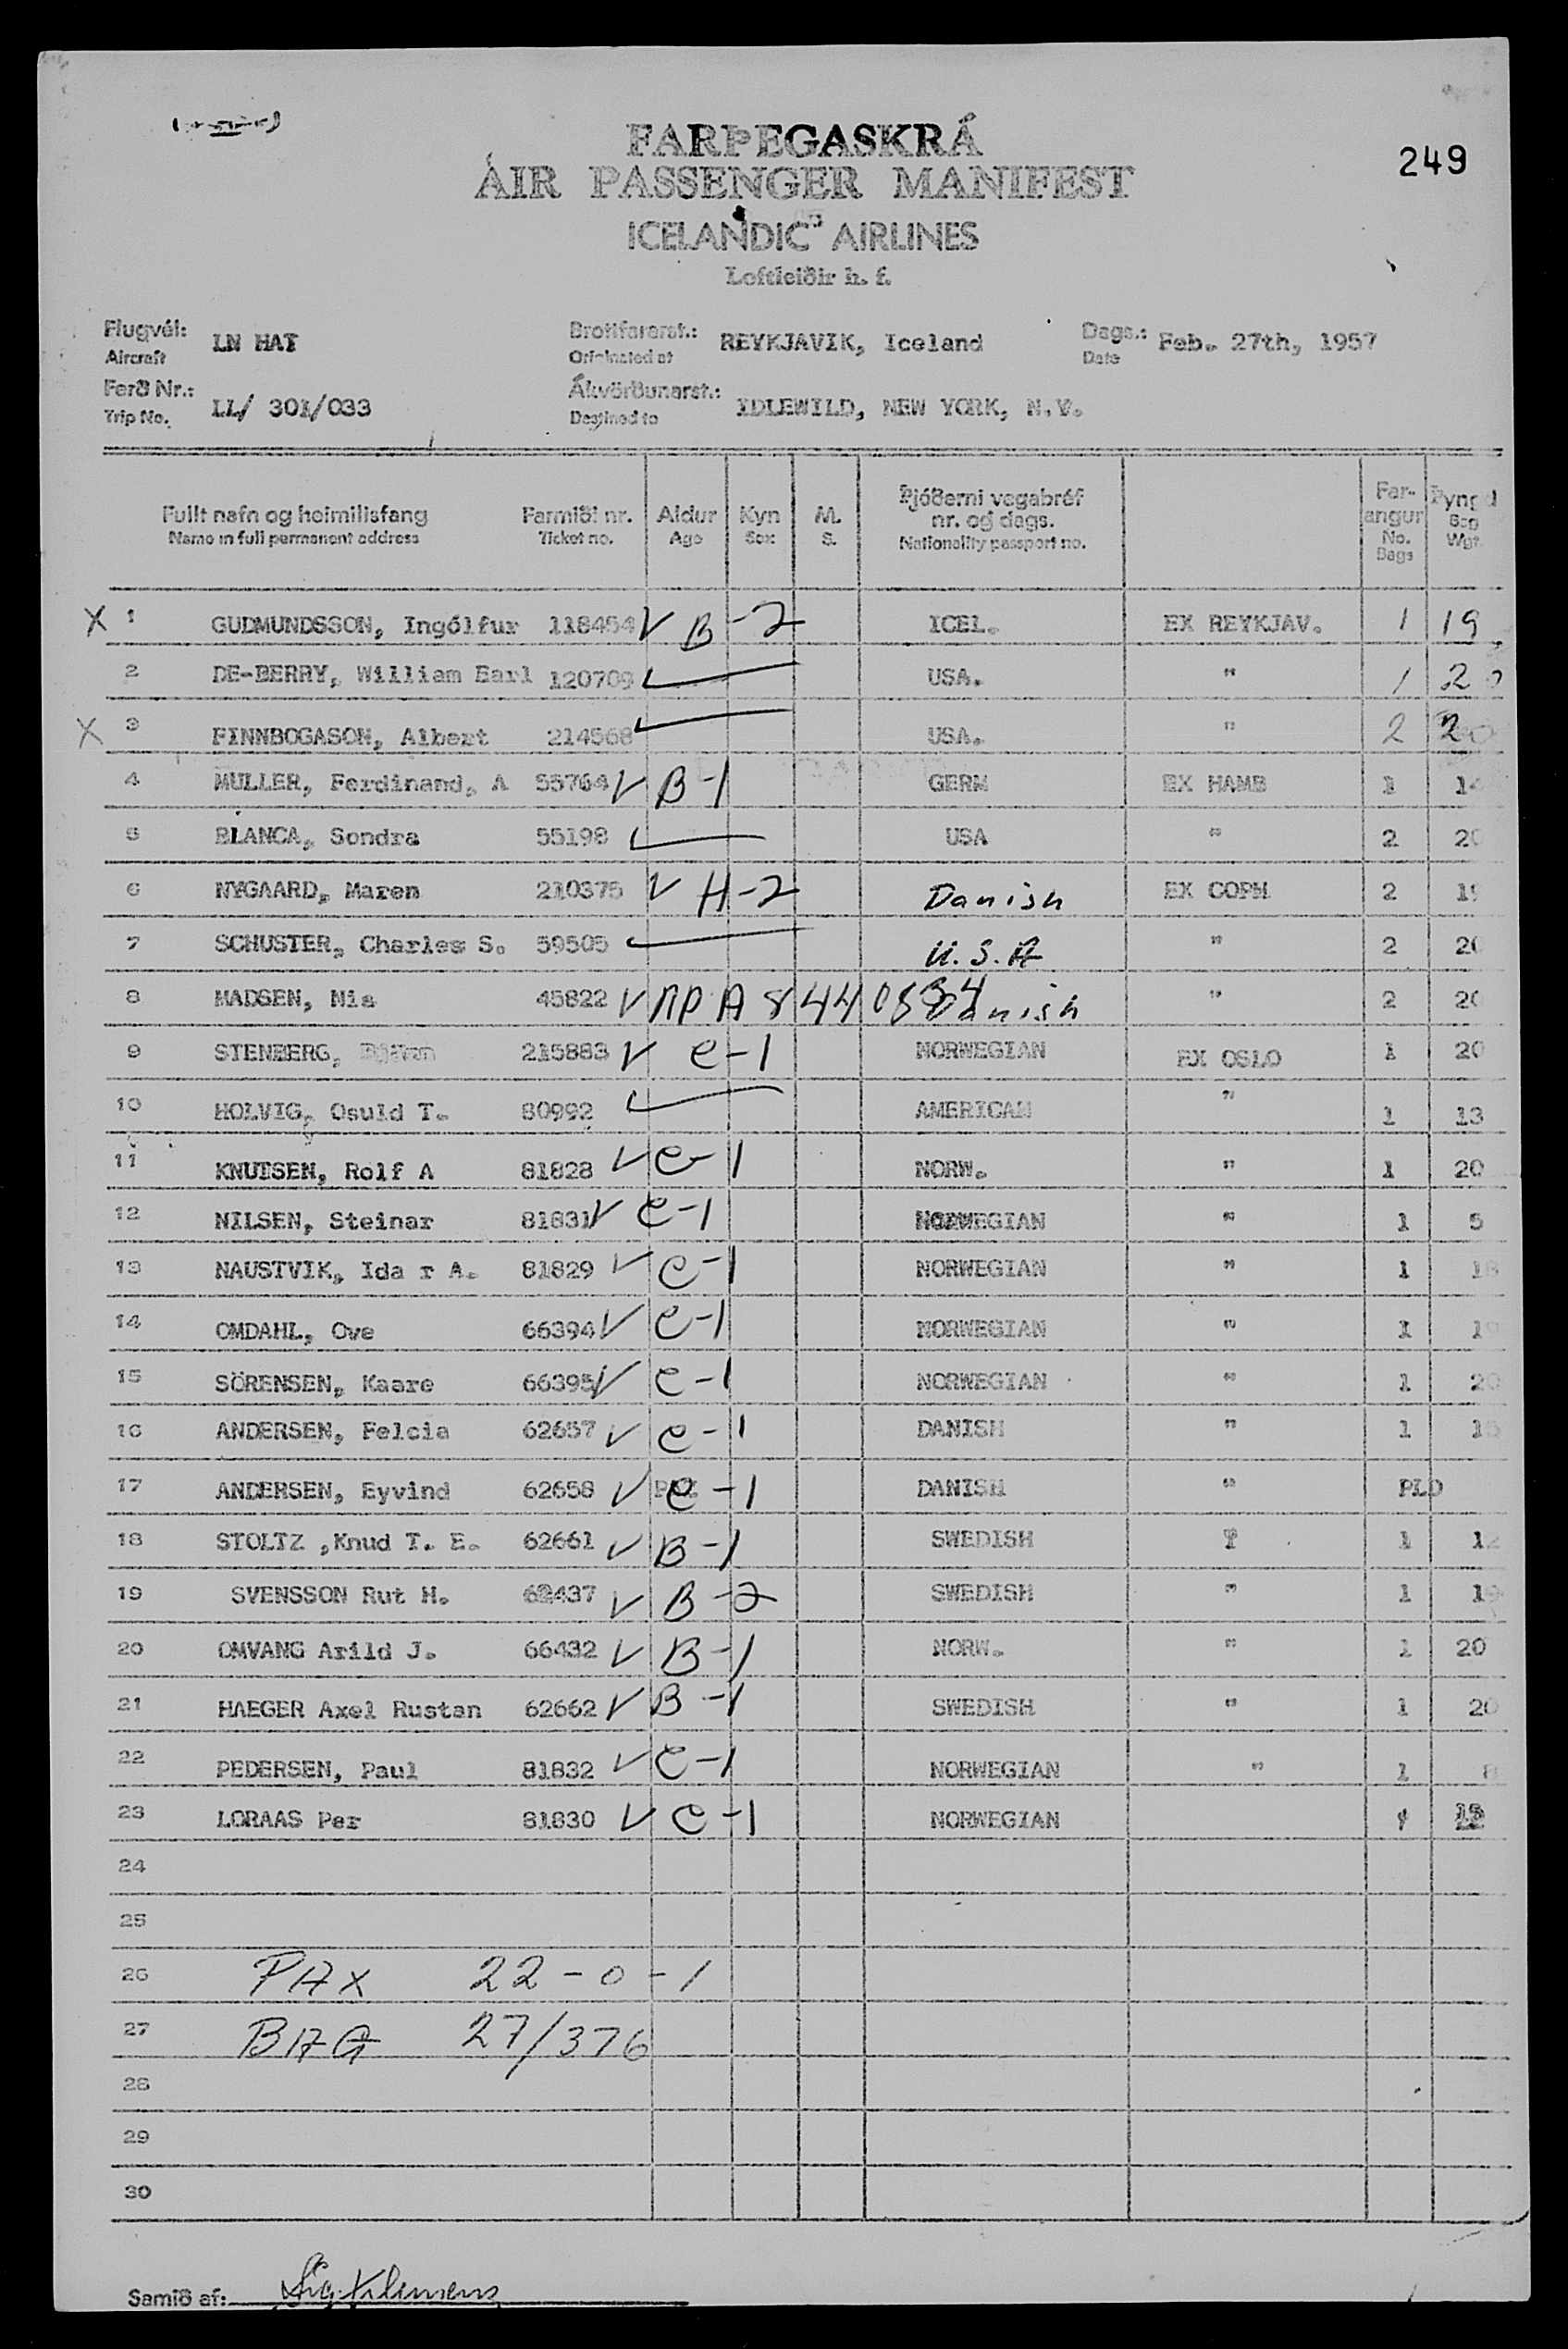 249
FARÞEGASKRÁ
AIR PASSENGER MANIFEST
ICELANDIC AIRLINES
Loftleiðir h. f.
Flugvél: Aircraft LN HAT
Brottfararst.: Originated at REYKJAVIK, Iceland
Dags.: Date Feb. 27th, 1957
Ferð Nr.: Trip No. LL/ 301/033
Ákvörðunarst.: Destined to IDLEWILD, NEW YORK, N.Y.
Fullt nafn og heimilisfang Name in full permanent address
Farmiði nr. Ticket no.
Aldur Age
Kyn Sex
M. S.
Þjóðerni vegabréf nr. og dags. Nationality passport no.
Far-angur No. Bags
Þyngd Bag Wgt.
X 1 GUDMUNDSSON, Ingólfur 118454 ✓ B-2 ICEL. EX REYKJAV. 1 19
2 DE-BERRY, William Earl 120709 ✓ USA. " 1 20
X 3 FINNBOGASON, Albert 214568 ✓ USA. " 2 20
4 MULLER, Ferdinand, A 55764 ✓ B-1 GERM EX HAMB 1 14
5 BLANCA, Sondra 55198 ✓ USA " 2 20
6 NYGAARD, Maren 210375 ✓ H-2 Danish EX COPH 2
7 SCHUSTER, Charles S. 59505 ✓ U.S.A " 2 20
8 MADSEN, Mia 45822 ✓ Danish " 2 20
9 STENBERG, 215883 ✓ C-1 NORWEGIAN EX OSLO 1 20
10 HOLVIG, Osuld T. 80992 ✓ AMERICAN " 1 13
11 KNUTSEN, Rolf A 81828 ✓ C-1 NORW. " 1 20
12 NILSEN, Steinar 81831 ✓ C-1 NORWEGIAN " 1 5
13 NAUSTVIK, Ida r A. 81829 ✓ C-1 NORWEGIAN " 1 18
14 OMDAHL, Ove 66394 ✓ C-1 NORWEGIAN " 1 19
15 SÖRENSEN, Kaare 66395 ✓ C-1 NORWEGIAN " 1 20
16 ANDERSEN, Felcia 62657 ✓ C-1 DANISH " 1 15
17 ANDERSEN, Eyvind 62658 ✓ C-1 DANISH " PLD
18 STOLTZ ,Knud T. E. 62661 ✓ B-1 SWEDISH " 1 12
19 SVENSSON Rut H. 62437 ✓ B-2 SWEDISH " 1 19
20 OMVANG Arild J. 66432 ✓ B-1 NORW. " 1 20
21 HAEGER Axel Rustan 62662 ✓ B-1 SWEDISH " 1 20
22 PEDERSEN, Paul 81832 ✓ C-1 NORWEGIAN " 1 8
23 LORAAS Per 81830 ✓ C-1 NORWEGIAN 1
24
25
26 PAX 22-0-1
27 BAG 27/376
28
29
30
Samið af: Sig. Klemens